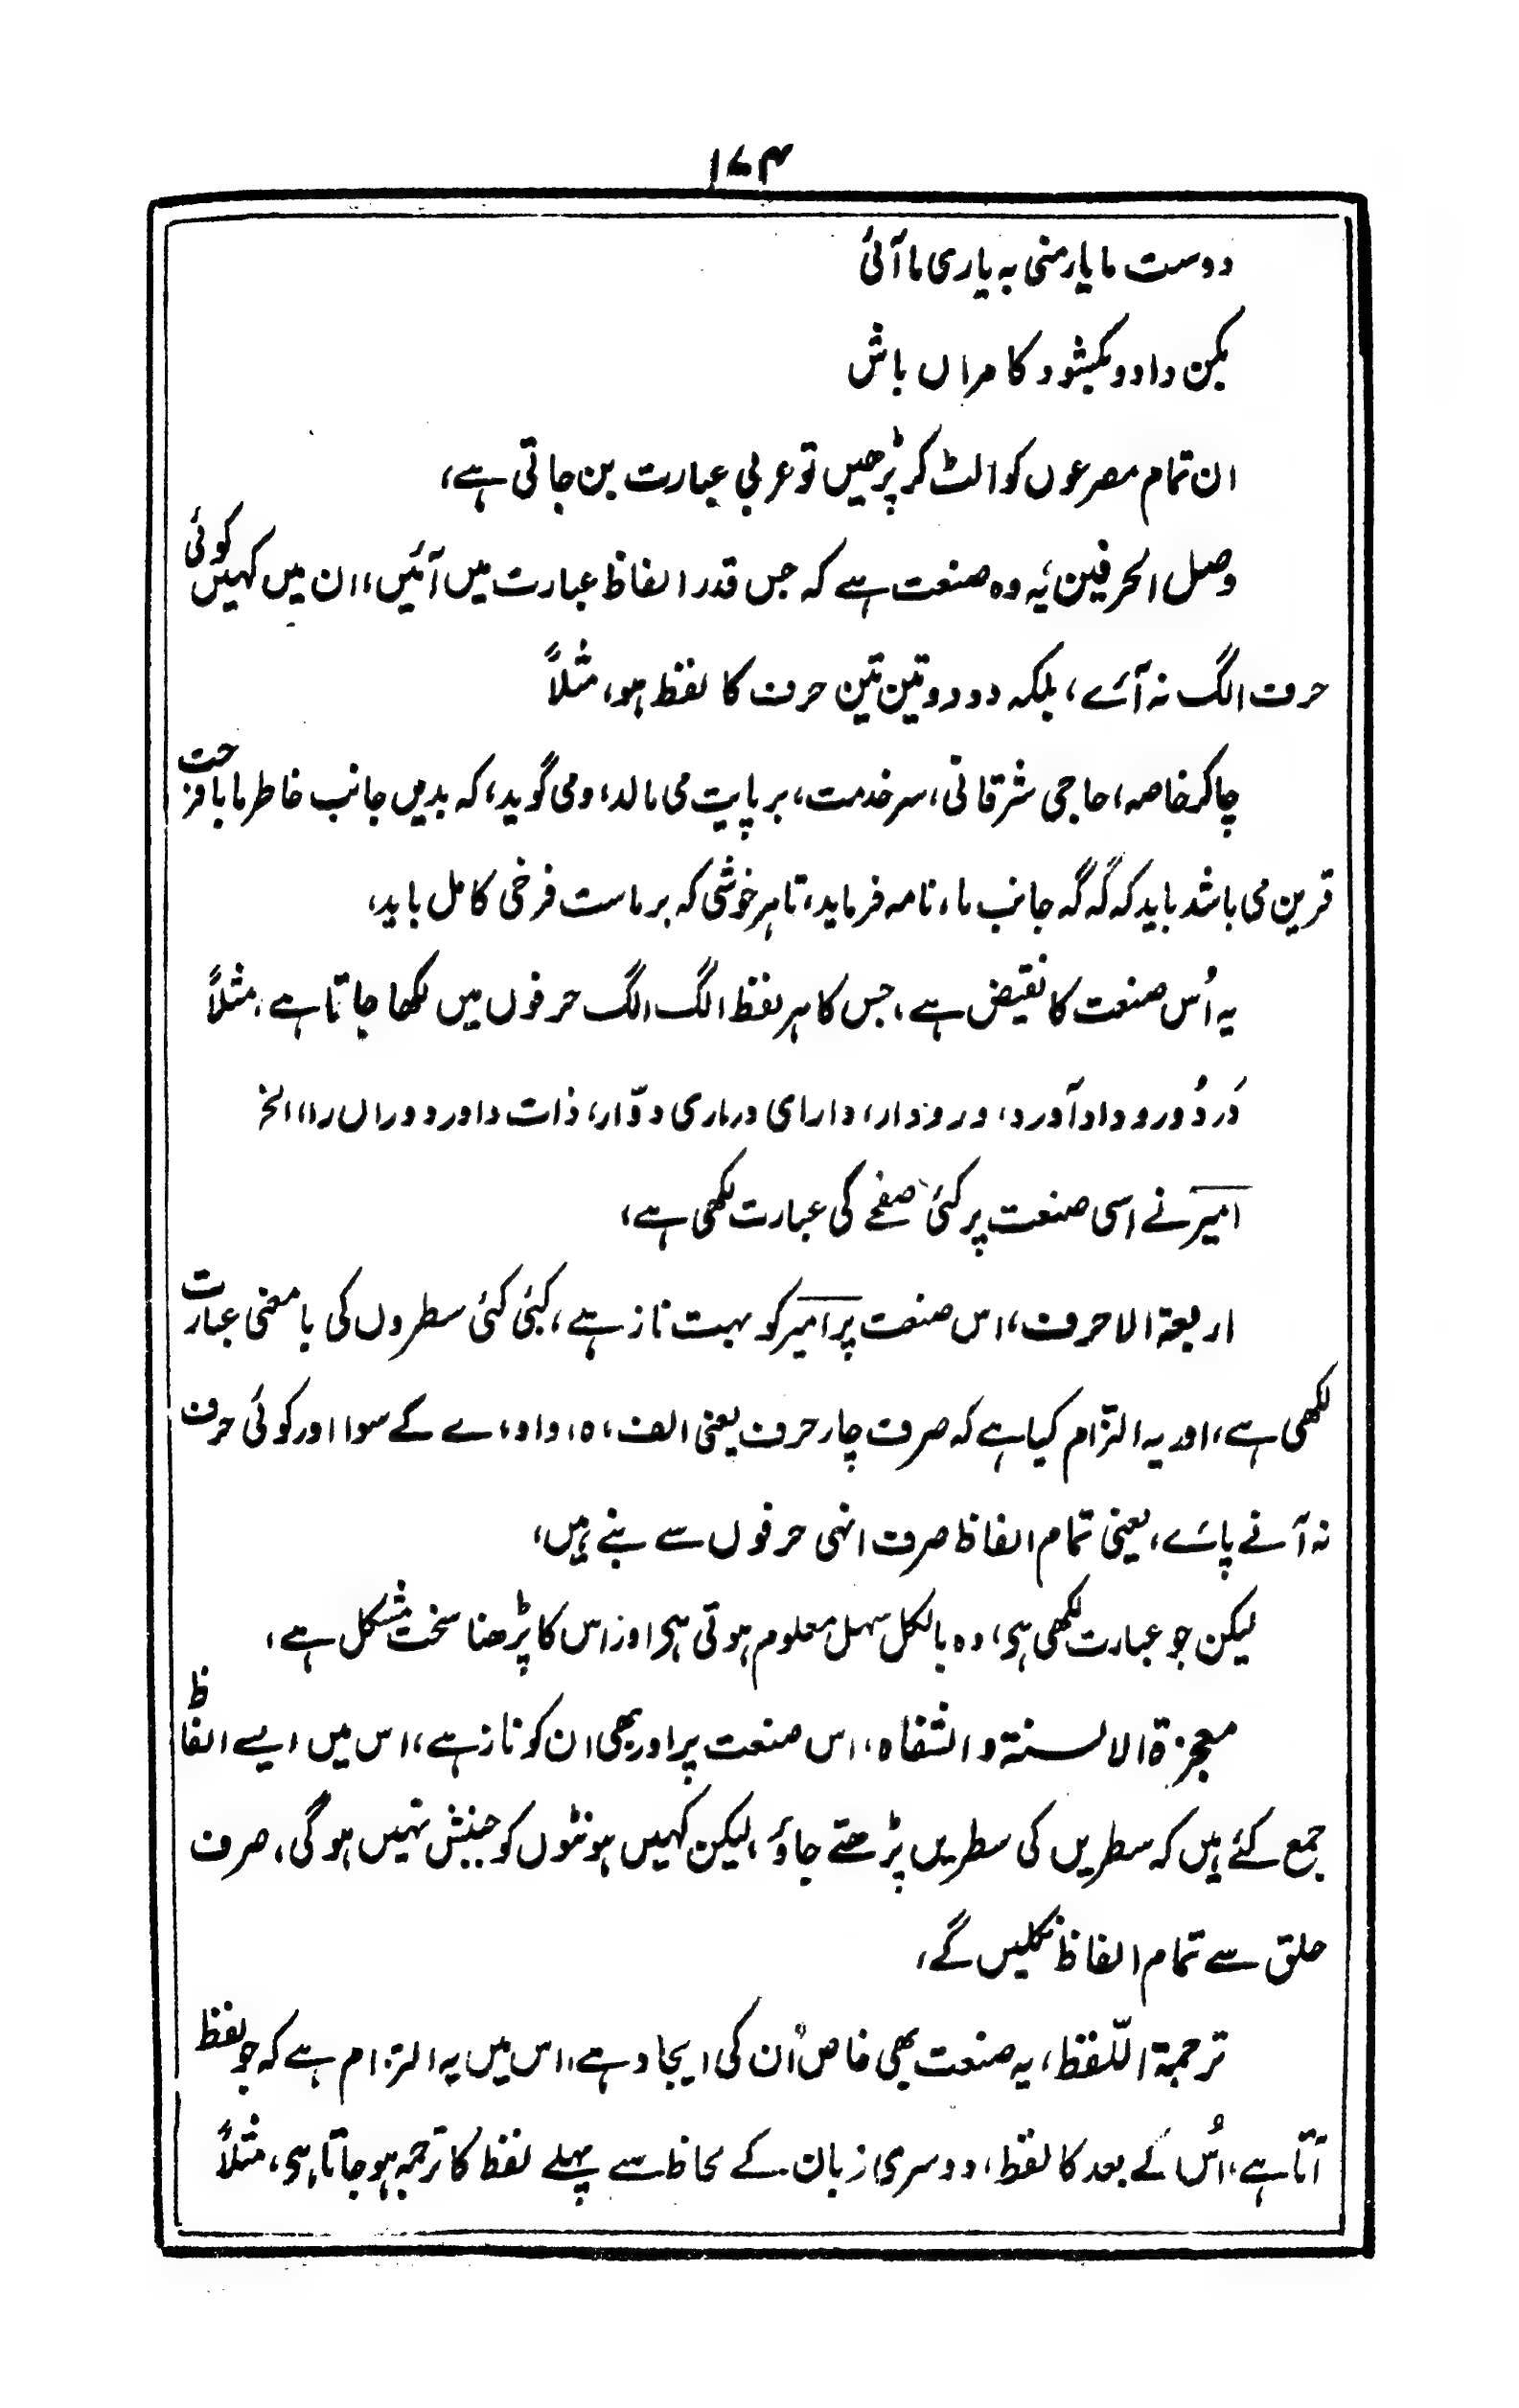 ۱۷۴
دوست ما یار منی بہ یاری ما آئی
بکن داد و بکشود کامراں باش
ان تمام مصرعوں کو الٹ کر پڑھیں تو عربی عبارت بن جاتی ہے،
وصل الحرفین، یہ وہ صنعت ہے کہ جس قدر الفاظ عبارت میں آئیں، ان میں کہیں کوئی
حرف الگ نہ آئے، بلکہ دو دو تین تین حرف کا لفظ ہو، مثلاً
چاکر خاصہ، حاجی شرقانی، سر خدمت، بر پایت می مالد، ومی گوید، کہ بدیں جانب خاطر ما با فرحت
قرین می باشد باید کہ گہ گہ جانب ما، نامہ فرماید، تا ہر خوشی کہ بر ماست فرخی کامل باید،
یہ اُس صنعت کا نقیض ہے، جس کا ہر لفظ الگ الگ حرفوں میں لکھا جاتا ہے، مثلاً
دَر دُور وداد آورد، ورو زدار، دارای درباری دوّار، ذات داور دوراں را، الخ
امیر نے اسی صنعت پر کئی صفحے کی عبارت لکھی ہے،
اربعۃ الاحرف، اس صنعت پر امیر کو بہت ناز ہے، کئی کئی سطروں کی بامعنی عبارت
لکھی ہے، اور یہ التزام کیا ہے کہ صرف چار حرف یعنی الف، ہ، واو، ے کے سوا اور کوئی حرف
نہ آنے پائے، یعنی تمام الفاظ صرف انہی حرفوں سے بنے ہیں،
لیکن جو عبارت لکھی ہی، وہ بالکل مہمل معلوم ہوتی ہی اور اس کا پڑھنا سخت مشکل ہے،
معجزۃ الالسنۃ والشفاہ، اس صنعت پر اور بھی ان کو ناز ہے، اس میں ایسے الفاظ
جمع کئے ہیں کہ سطریں کی سطریں پڑھتے جاؤ، لیکن کہیں ہونٹوں کو جنبش نہیں ہوگی، صرف
حلق سے تمام الفاظ نکلیں گے،
ترجمۃ اللّفظ، یہ صنعت بھی خاص اُن کی ایجاد ہے، اس میں یہ التزام ہے کہ جو لفظ
آتا ہے، اُس کے بعد کا لفظ، دوسری زبان کے لحاظ سے پہلے لفظ کا ترجمہ ہو جاتا ہی، مثلاً